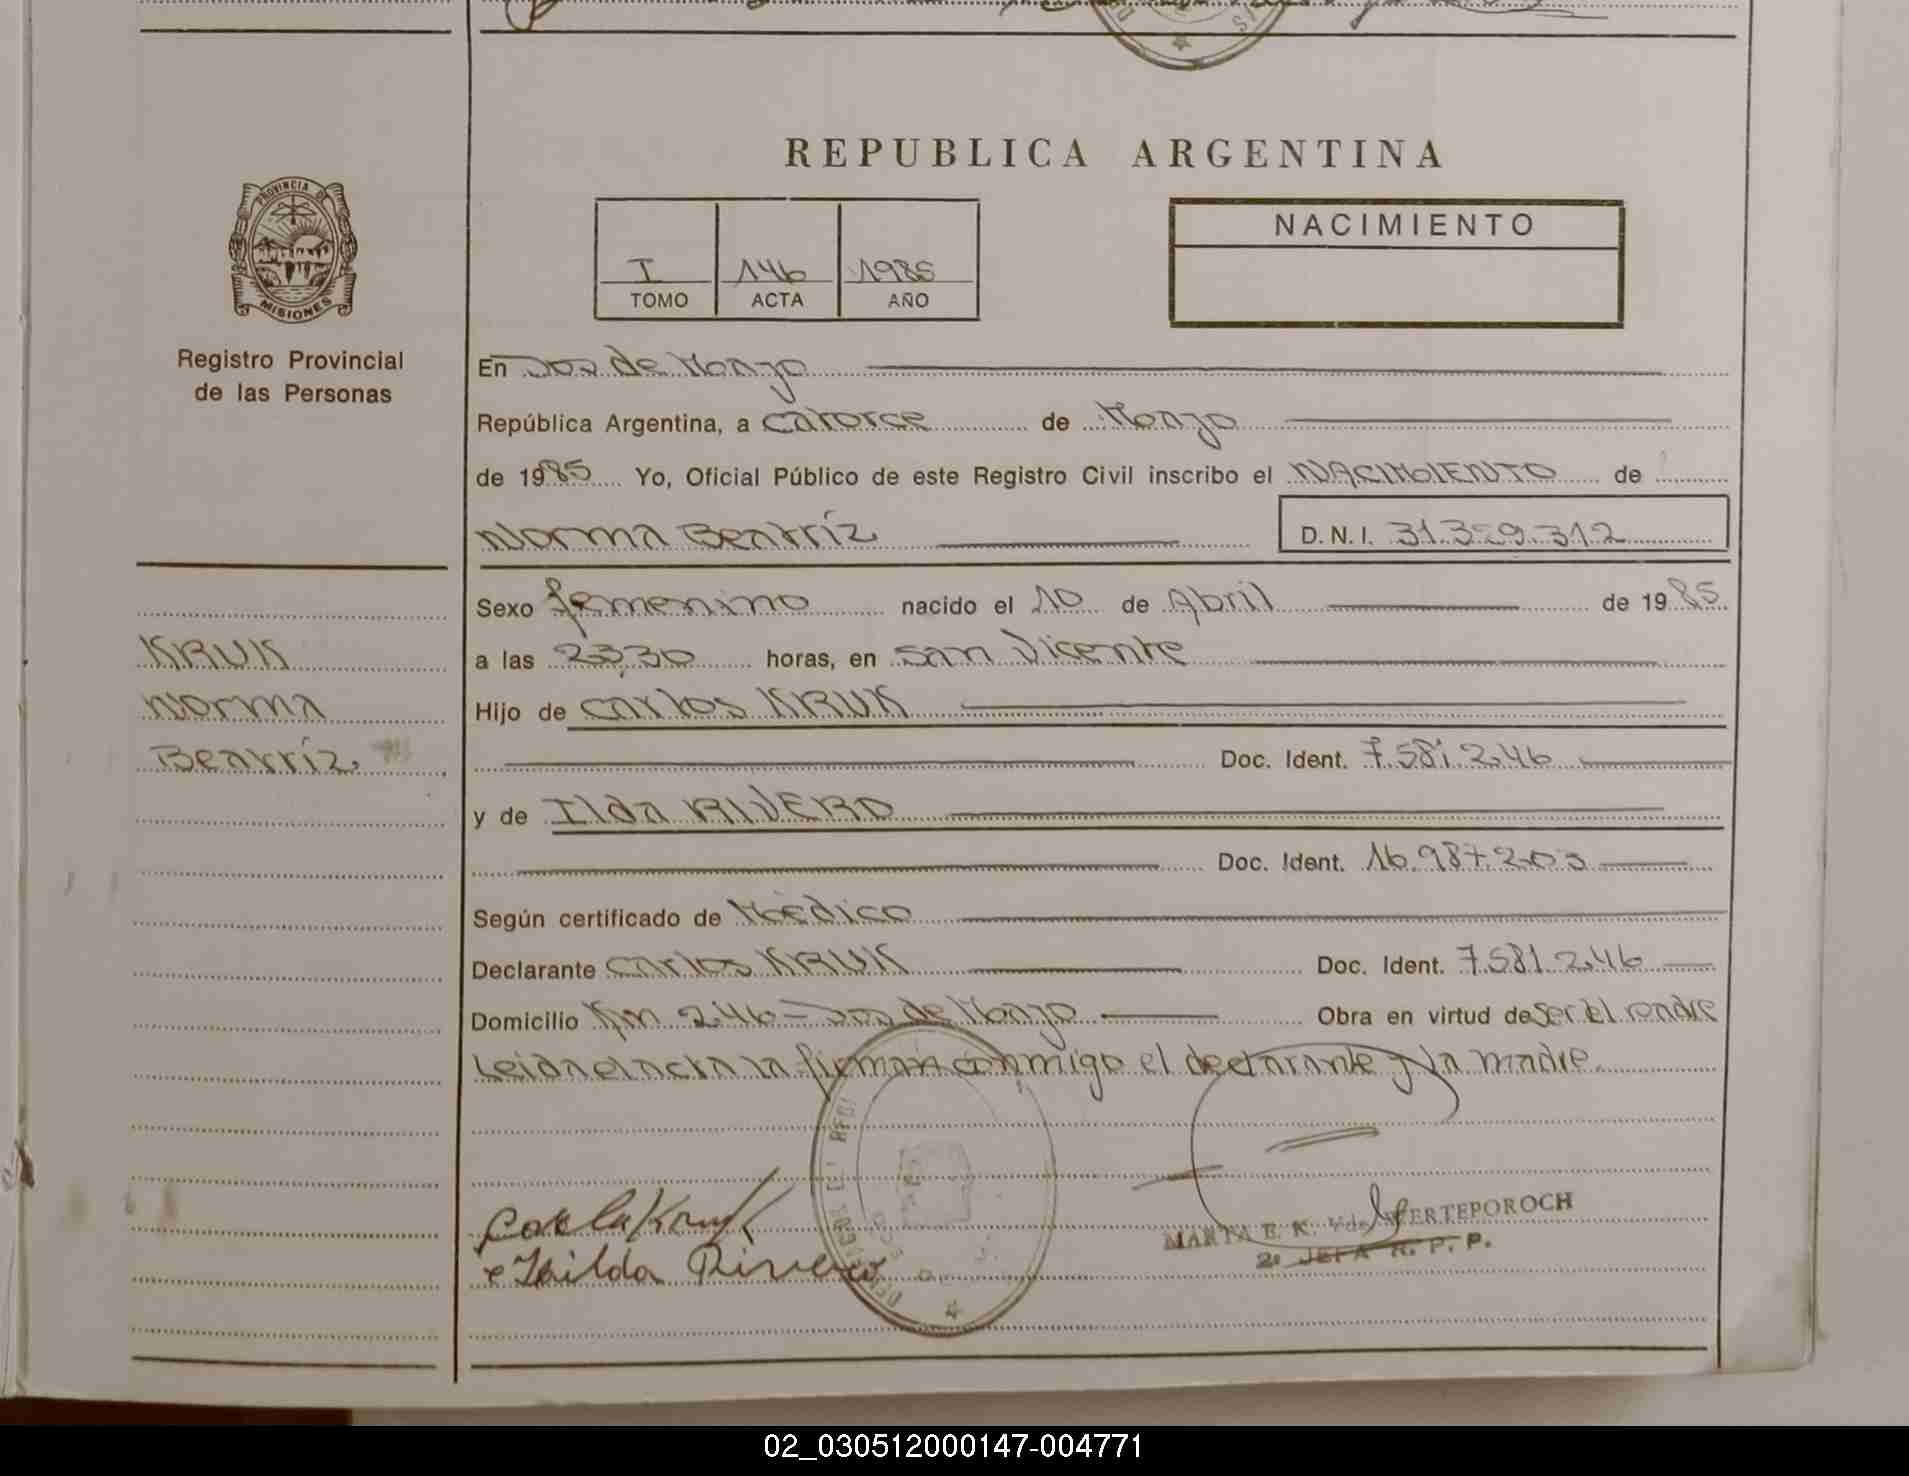 REPUBLICA ARGENTINA
PROVINCIA DE
MISIONES
Registro Provincial
de las Personas
I 146 1985
TOMO ACTA AÑO
NACIMIENTO
En Dos de Mayo
República Argentina, a catorce de Mayo
de 1985 Yo, Oficial Público de este Registro Civil inscribo el NACIMIENTO de
Norma Beatríz D.N.I. 31.329.312
Sexo femenino nacido el 10 de Abril de 1985
KRUK
Norma
Beatríz.
a las 23,30 horas, en San Vicente
Hijo de Carlos KRUK
Doc. Ident. 7.581.246
y de Ilda RIVERO
Doc. Ident. 16.987.203
Según certificado de Médico
Declarante Carlos KRUK Doc. Ident. 7.581.246
Domicilio Km 246 = Dos de Mayo Obra en virtud de Ser El Padre
Leida el acta la firman conmigo el declarante y la madre.
Kruk
Rivero
MARTA E. K. Vda.
2° JEFA R. P. P.
02_030512000147-004771